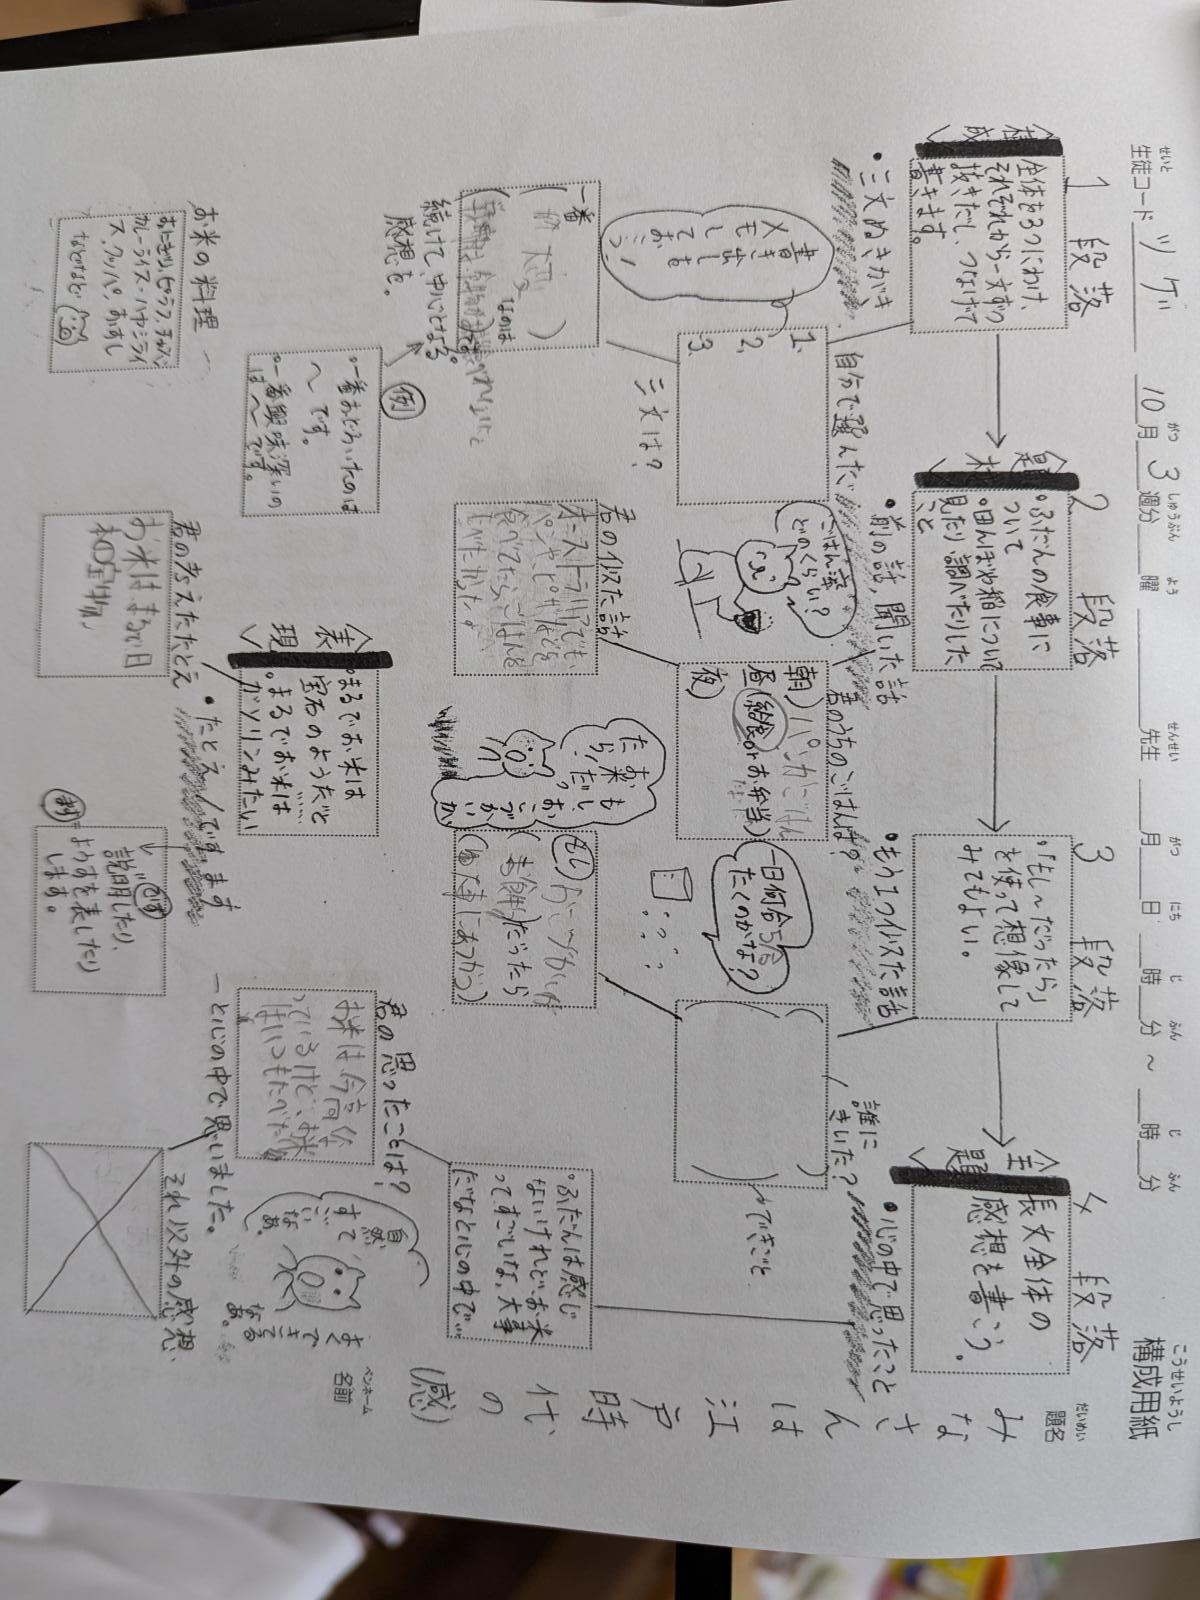 こうせいようし
構成用紙
せいと
生徒コード ツゲ
がつ しゅうぶん よう せんせい がつ にち じ ふん じ ふん
10月3週分 曜 先生 月 日 時 分 ～ 時 分
だいめい
題名
みなさんは江戸時代の(感)
ペンネーム
名前
1段落
構成
全体を3つにわけ、
それぞれから一文ずつ
抜きだし、つなげて
書きます。
・三文ぬきがき
書き出し
メモして
おこう!
自分で選んだ
1.
2.
3.
三文は?
一番
なのは
続けて、中心となる
感想を。
例
・一番おどろいたのは
～です。
・一番興味深いの
は～です。
お米の料理
おにぎり、ピラフ、チャーハン
カレーライス・ハヤシライ
ス、クッパ、おすし
などなど
2段落
題材
・ふだんの食事に
ついて
・田んぼや稲について
見たり調べたりした
こと
・前の話、聞いた話
ごはん茶
どのくらい?
君のうちのごはんは?
朝)パンかごはん
昼(給食orお弁当)
夜)
君の似た話
オーストラリアでも、
パンや、ピザなどを
食べてたらごはんを
たべたかった
表現
・まるでお米は
宝石のようだと……
・まるでお米は
ガソリンみたい
・たとえ/です、ます
君の考えたたとえ
お米はまるで日
本の宝物
説明したり、
ようすを表したり
します。
3段落
・「もし～だったら」
を使って想像して
みてもよい。
・もう1つ似た話
一日何合
たくのかな?
誰に
きいた?
～できごと
もし
だったら
(大事にあつかう)
もし、おこづかいが
お米だっ
たら!
4段落
主題
長文全体の
感想を書こう。
・心の中で思ったこと
・ふだんは感じ
ないけれどお米
ってすごいな、大事
だなと心の中で…
君の思ったことは?
お米は今高くな
っているけど、お米
はいつもたべた
―と心の中で思いました。
自然
すご
いな
ぁ。
よく
できてる
なぁ。
それ以外の感想、